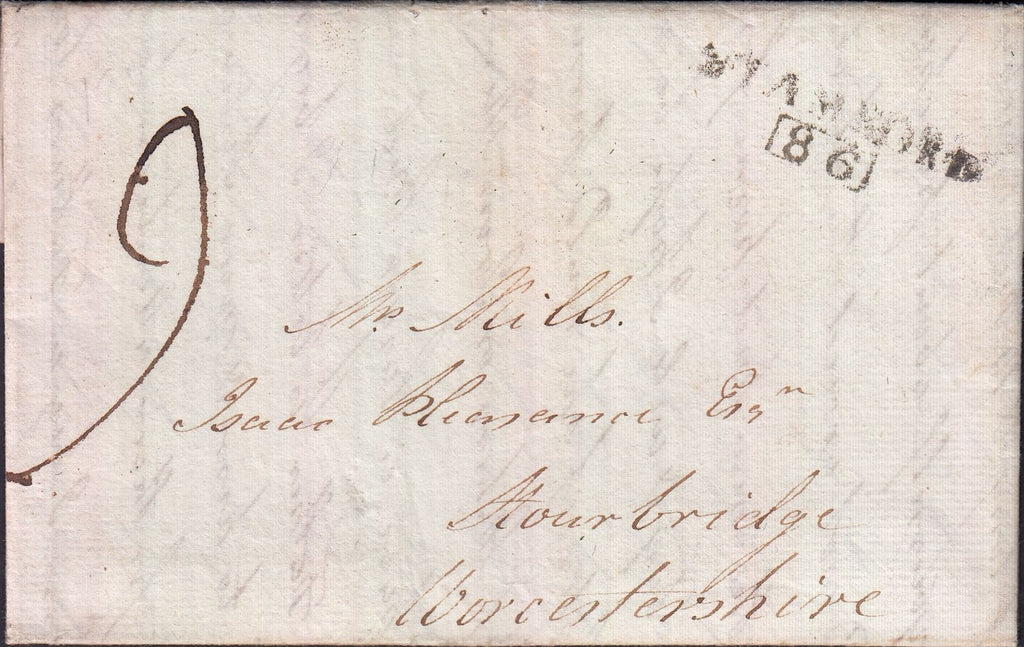 STAMFORD
86
9
Mr. Mills.
Isaac Esqr
Stourbridge
Worcestershire